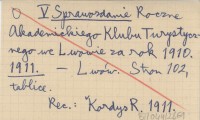 V Sprawozdanie Roczne
Akademickiego Klubu Turystycz-
nego we Lwowie za rok 1910.
1911. — Lwów. Stron 102,
tablice.
Rec.: Kordys R. 1911.